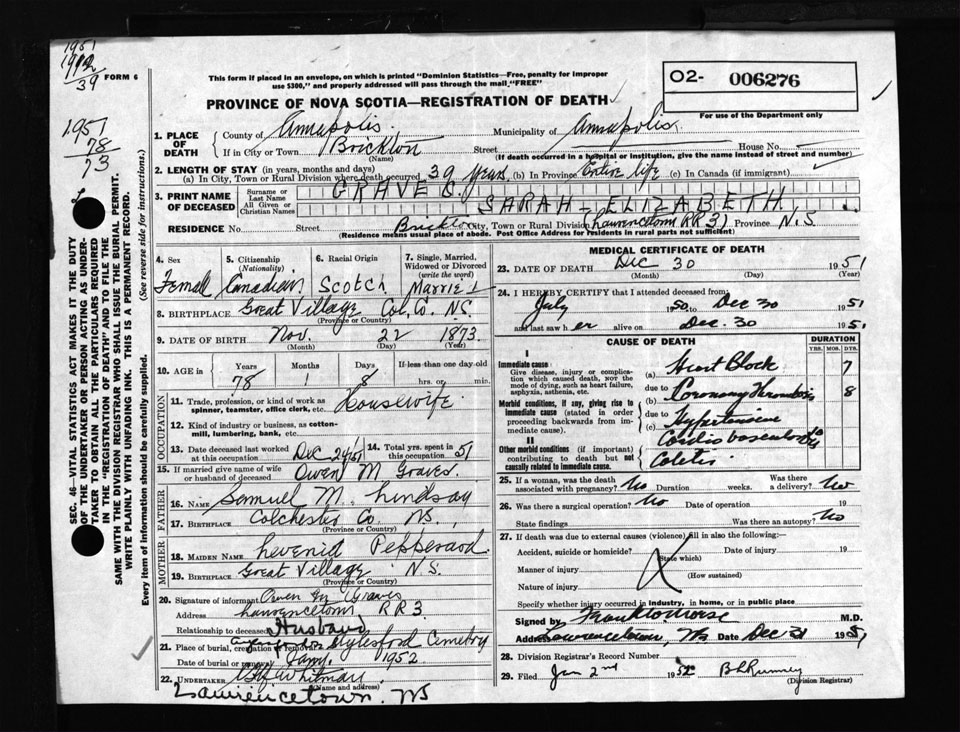 1951
1912
39
FORM 6
1951
78
73
This form if placed in an envelope, on which is printed "Dominion Statistics—Free, penalty for improper
use $300," and properly addressed will pass through the mail "FREE"
O2- 006276
For use of the Department only
PROVINCE OF NOVA SCOTIA—REGISTRATION OF DEATH
1. PLACE OF DEATH County of Annapolis Municipality of Annapolis
If in City or Town Brickton Street House No.
(Name) (If death occurred in a hospital or institution, give the name instead of street and number)
2. LENGTH OF STAY (in years, months and days)
(a) In City, Town or Rural Division where death occurred 39 Years (b) In Province Entire life (c) In Canada (if immigrant)
3. PRINT NAME OF DECEASED Surname or Last Name GRAVES
All Given or Christian Names SARAH - ELIZABETH
RESIDENCE No. Street Brickton City, Town or Rural Division (Lawrencetown RR3) Province N.S
(Residence means usual place of abode. Post Office Address for residents in rural parts not sufficient)
4. Sex Femall
5. Citizenship (Nationality) Canadian
6. Racial Origin Scotch
7. Single, Married, Widowed or Divorced (write the word) Married
8. BIRTHPLACE Great Village Col. Co. N.S.
(Province or Country)
9. DATE OF BIRTH Nov. 22 1873
(Month) (Day) (Year)
10. AGE in Years Months Days If less than one day old
78 1 8 hrs. or min.
OCCUPATION
11. Trade, profession, or kind of work as spinner, teamster, office clerk, etc. Housewife
12. Kind of industry or business, as cotton-mill, lumbering, bank, etc.
13. Date deceased last worked at this occupation Dec 24/51
14. Total yrs. spent in this occupation 51
15. If married give name of wife or husband of deceased Owen M Graves.
FATHER
16. NAME Samuel M. Lindsay
17. BIRTHPLACE Colchester Co. NS.
(Province or Country)
MOTHER
18. MAIDEN NAME
19. BIRTHPLACE Great Village N.S.
(Province or Country)
20. Signature of informant Owen M Graves
Address Lawrencetown RR3
Relationship to deceased Husband
21. Place of burial, cremation or removal Aylesford Cemetry
Date of burial or removal Jany. 1952
22. UNDERTAKER Whitman
(Name and address)
Lawrencetown. NS
MEDICAL CERTIFICATE OF DEATH
23. DATE OF DEATH Dec 30 1951
(Month) (Day) (Year)
24. I HEREBY CERTIFY that I attended deceased from:
July 1950 to Dec 30 1951
and last saw her alive on Dec. 30 1951
CAUSE OF DEATH
DURATION
YRS. MOS. DYS.
I
Immediate cause
Give disease, injury or complication which caused death, not the mode of dying, such as heart failure, asphyxia, asthenia, etc.
(a) Heart Block 7
due to
(b) Coronary Thrombosis 8
Morbid conditions, if any, giving rise to immediate cause (stated in order proceeding backwards from immediate cause).
due to
(c) Hypertensive
II
Other morbid conditions (if important) contributing to death but not causally related to immediate cause.
25. If a woman, was the death associated with pregnancy? No Duration weeks. Was there a delivery? No
26. Was there a surgical operation? No Date of operation 19
State findings Was there an autopsy? No
27. If death was due to external causes (violence) fill in also the following:—
Accident, suicide or homicide? Date of injury 19
(State which)
Manner of injury
(How sustained)
Nature of injury
Specify whether injury occurred in industry, in home, or in public place
Signed by Frank Morse M.D.
Address Lawrencetown, NS Date Dec 31 1951
28. Division Registrar's Record Number
29. Filed Jan 2nd 1952
(Division Registrar)
SEC. 46—VITAL STATISTICS ACT MAKES IT THE DUTY
OF THE UNDERTAKER OR PERSON ACTING AS UNDERTAKER TO OBTAIN ALL THE PARTICULARS REQUIRED
IN THE "REGISTRATION OF DEATH" AND TO FILE THE
SAME WITH THE DIVISION REGISTRAR WHO SHALL ISSUE THE BURIAL PERMIT.
WRITE PLAINLY WITH UNFADING INK. THIS IS A PERMANENT RECORD.
Every item of information should be carefully supplied. (See reverse side for instructions.)